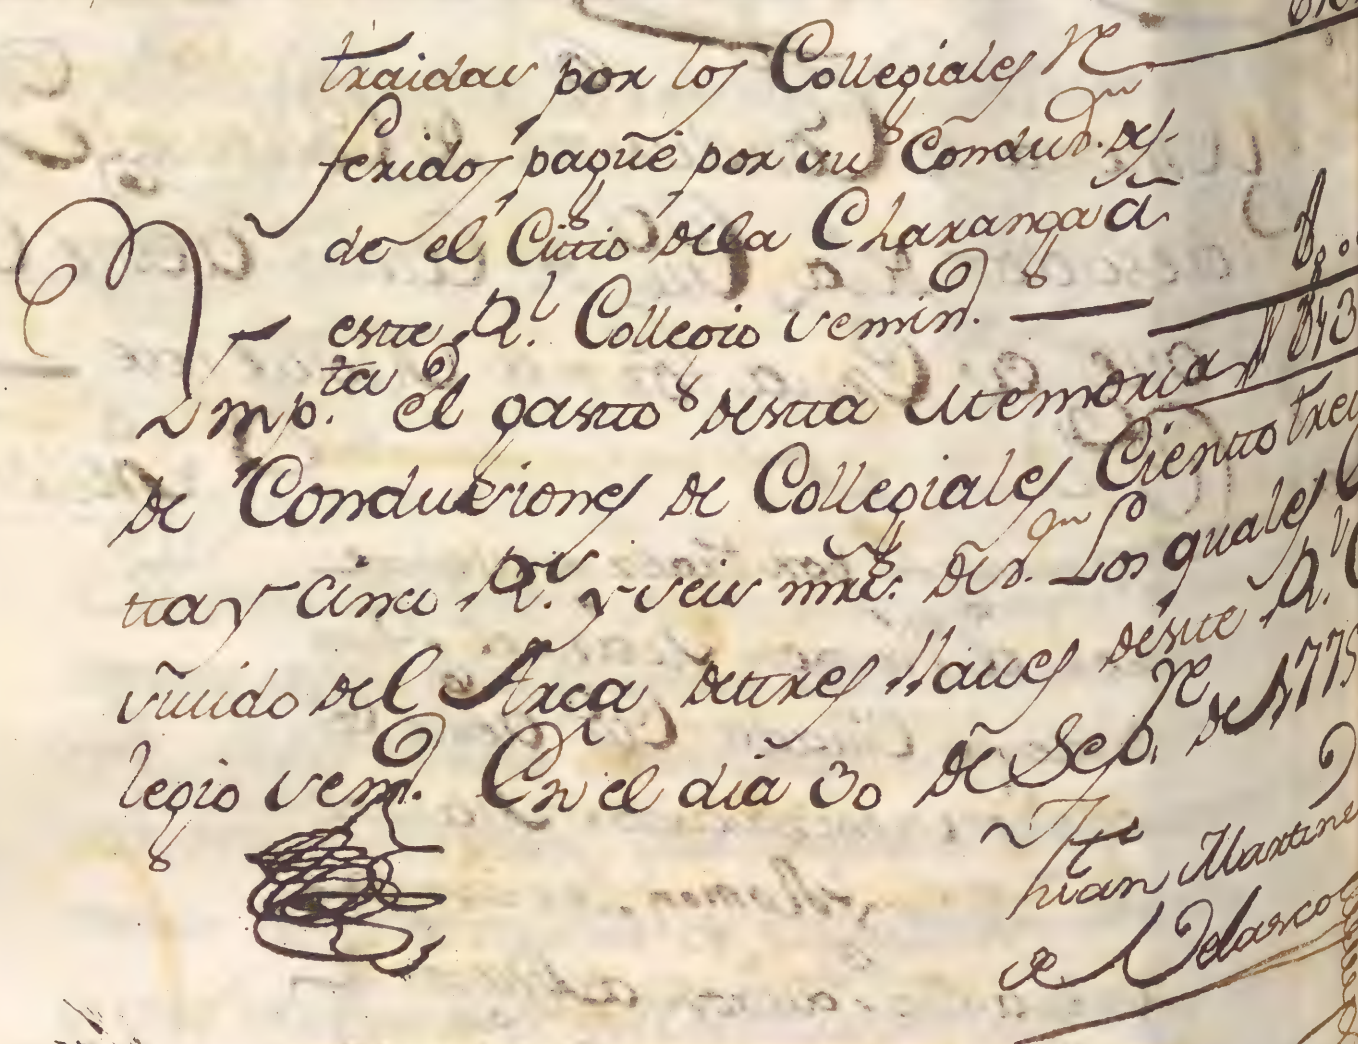 traidas por los Collegiales Re
feridos pagué por su Conduc.on des-
de el Citio de la Charanga à
este R.l Collegio Semin.o
Imp.ta el gasto desta Memoria
de Conducsiones de Collegiales Ciento trei
ta y cinco R.s y seis mrs. de v.on Los quales
resuido del Arca de tres llaves deste R.l
legio Sem.o En el dia 30 de Sep.re de 177
Juan Martine
de Velasco